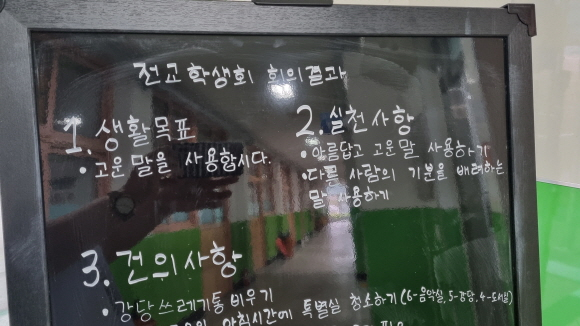 전교 학생회 회의결과
1. 생활목표
• 고운말을 사용합시다.
2. 실천사항
• 아름답고 고운말 사용하기
• 다른 사람의 기분을 배려하는
말 사용하기
3. 건의사항
• 강당 쓰레기통 비우기
아침시간에 특별실 청소하기 (6-음악실, 5-강당, 4-도서실)